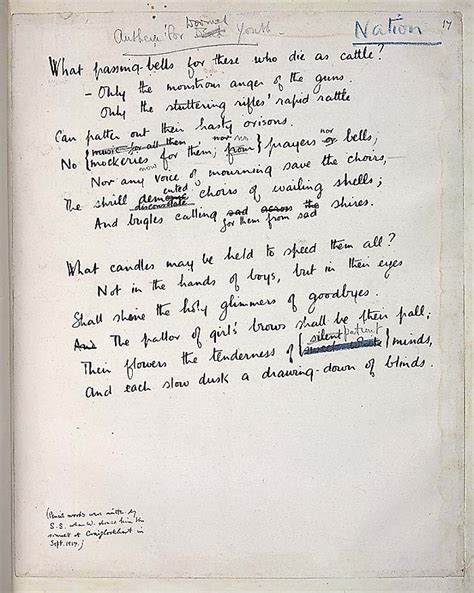 Anthem for Dead Doomed Youth
Nation
17
What passing-bells for these who die as cattle?
- Only the monstrous anger of the guns.
Only the stuttering rifles' rapid rattle
Can patter out their hasty orisons.
No { music for all them nor no
mockeries for them; from } prayers nor or bells;
Nor any voice of mourning save the choirs,-
The shrill demented choirs of wailing shells;
disconsolate
And bugles calling sad across the shires.
for them from sad
What candles may be held to speed them all?
Not in the hands of boys, but in their eyes
Shall shine the holy glimmers of goodbyes.
And The pallor of girls' brows shall be their pall;
Their flowers the tenderness of { silent patient
sweet } minds,
And each slow dusk a drawing-down of blinds.
(Pencil words were written by
S.S. when W. showed him the
sonnet at Craiglockhart in
Sept. 1917.)